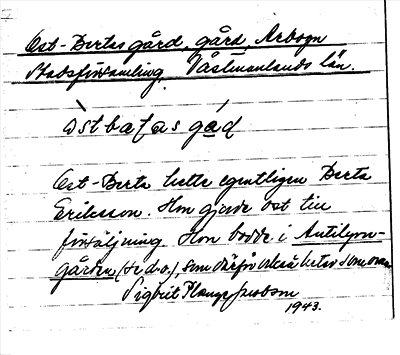 Ost-Bertas gård, gård, Arboga
Stadsförsamling, Västmanlands län.
òstbæʈas gá̄d
Ost-Berta hette egentligen Berta
Eriksson. Hon gjorde ost till
försäljning. Hon bodde i Antilopen-
gården (se d.o.), som därför också hetat som ovan
Sigbrit Plænge Jacobson
1943.